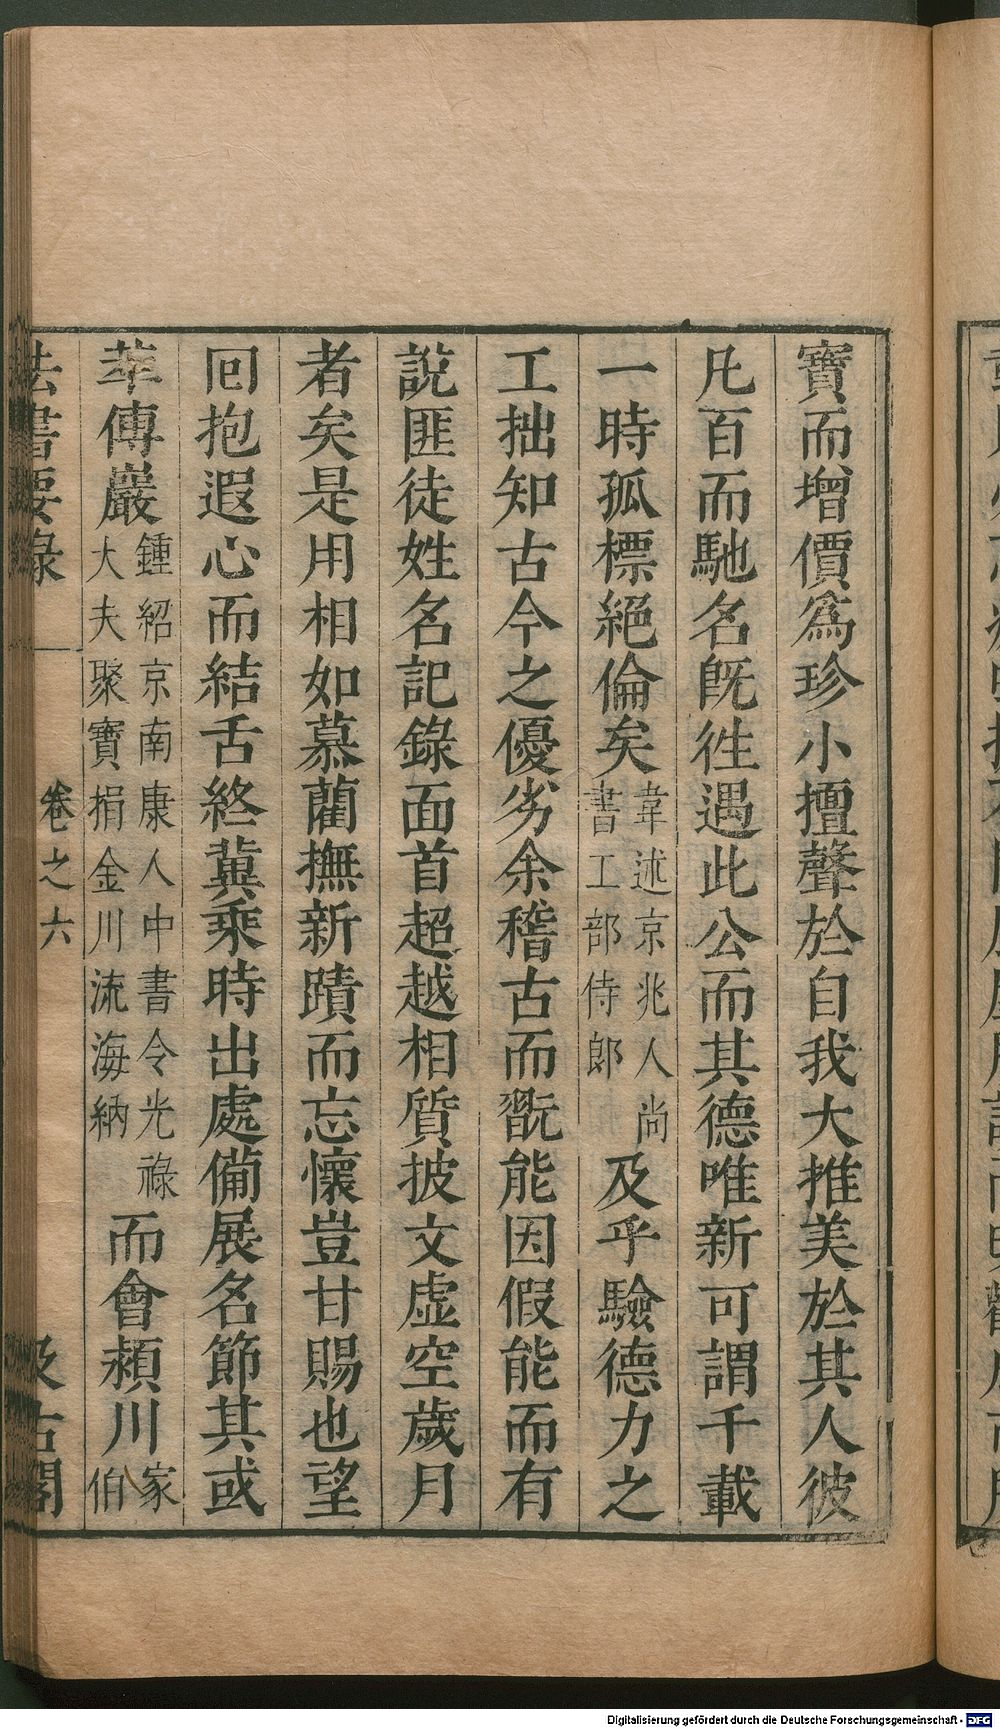 寶而增價爲珍小擅聲於自我大推美於其人彼
凡百而馳名旣往遇此公而其德唯新可謂千載
一時孤標絕倫矣韋述京兆人尚書工部侍郎及乎驗德力之
工拙知古今之優劣余稽古而翫能因假能而有
說匪徒姓名記錄面首超越相質披文虛空歲月
者矣是用相如慕藺撫新蹟而忘懷豈甘賜也望
回抱遐心而結舌終冀乘時出處備展名節其或
萃傳巖鍾紹京南康人中書令光祿大夫聚寶捐金川流海納而會潁川家伯
法書要錄 卷之六 汲古閣
Digitalisierung gefördert durch die Deutsche Forschungsgemeinschaft - DFG